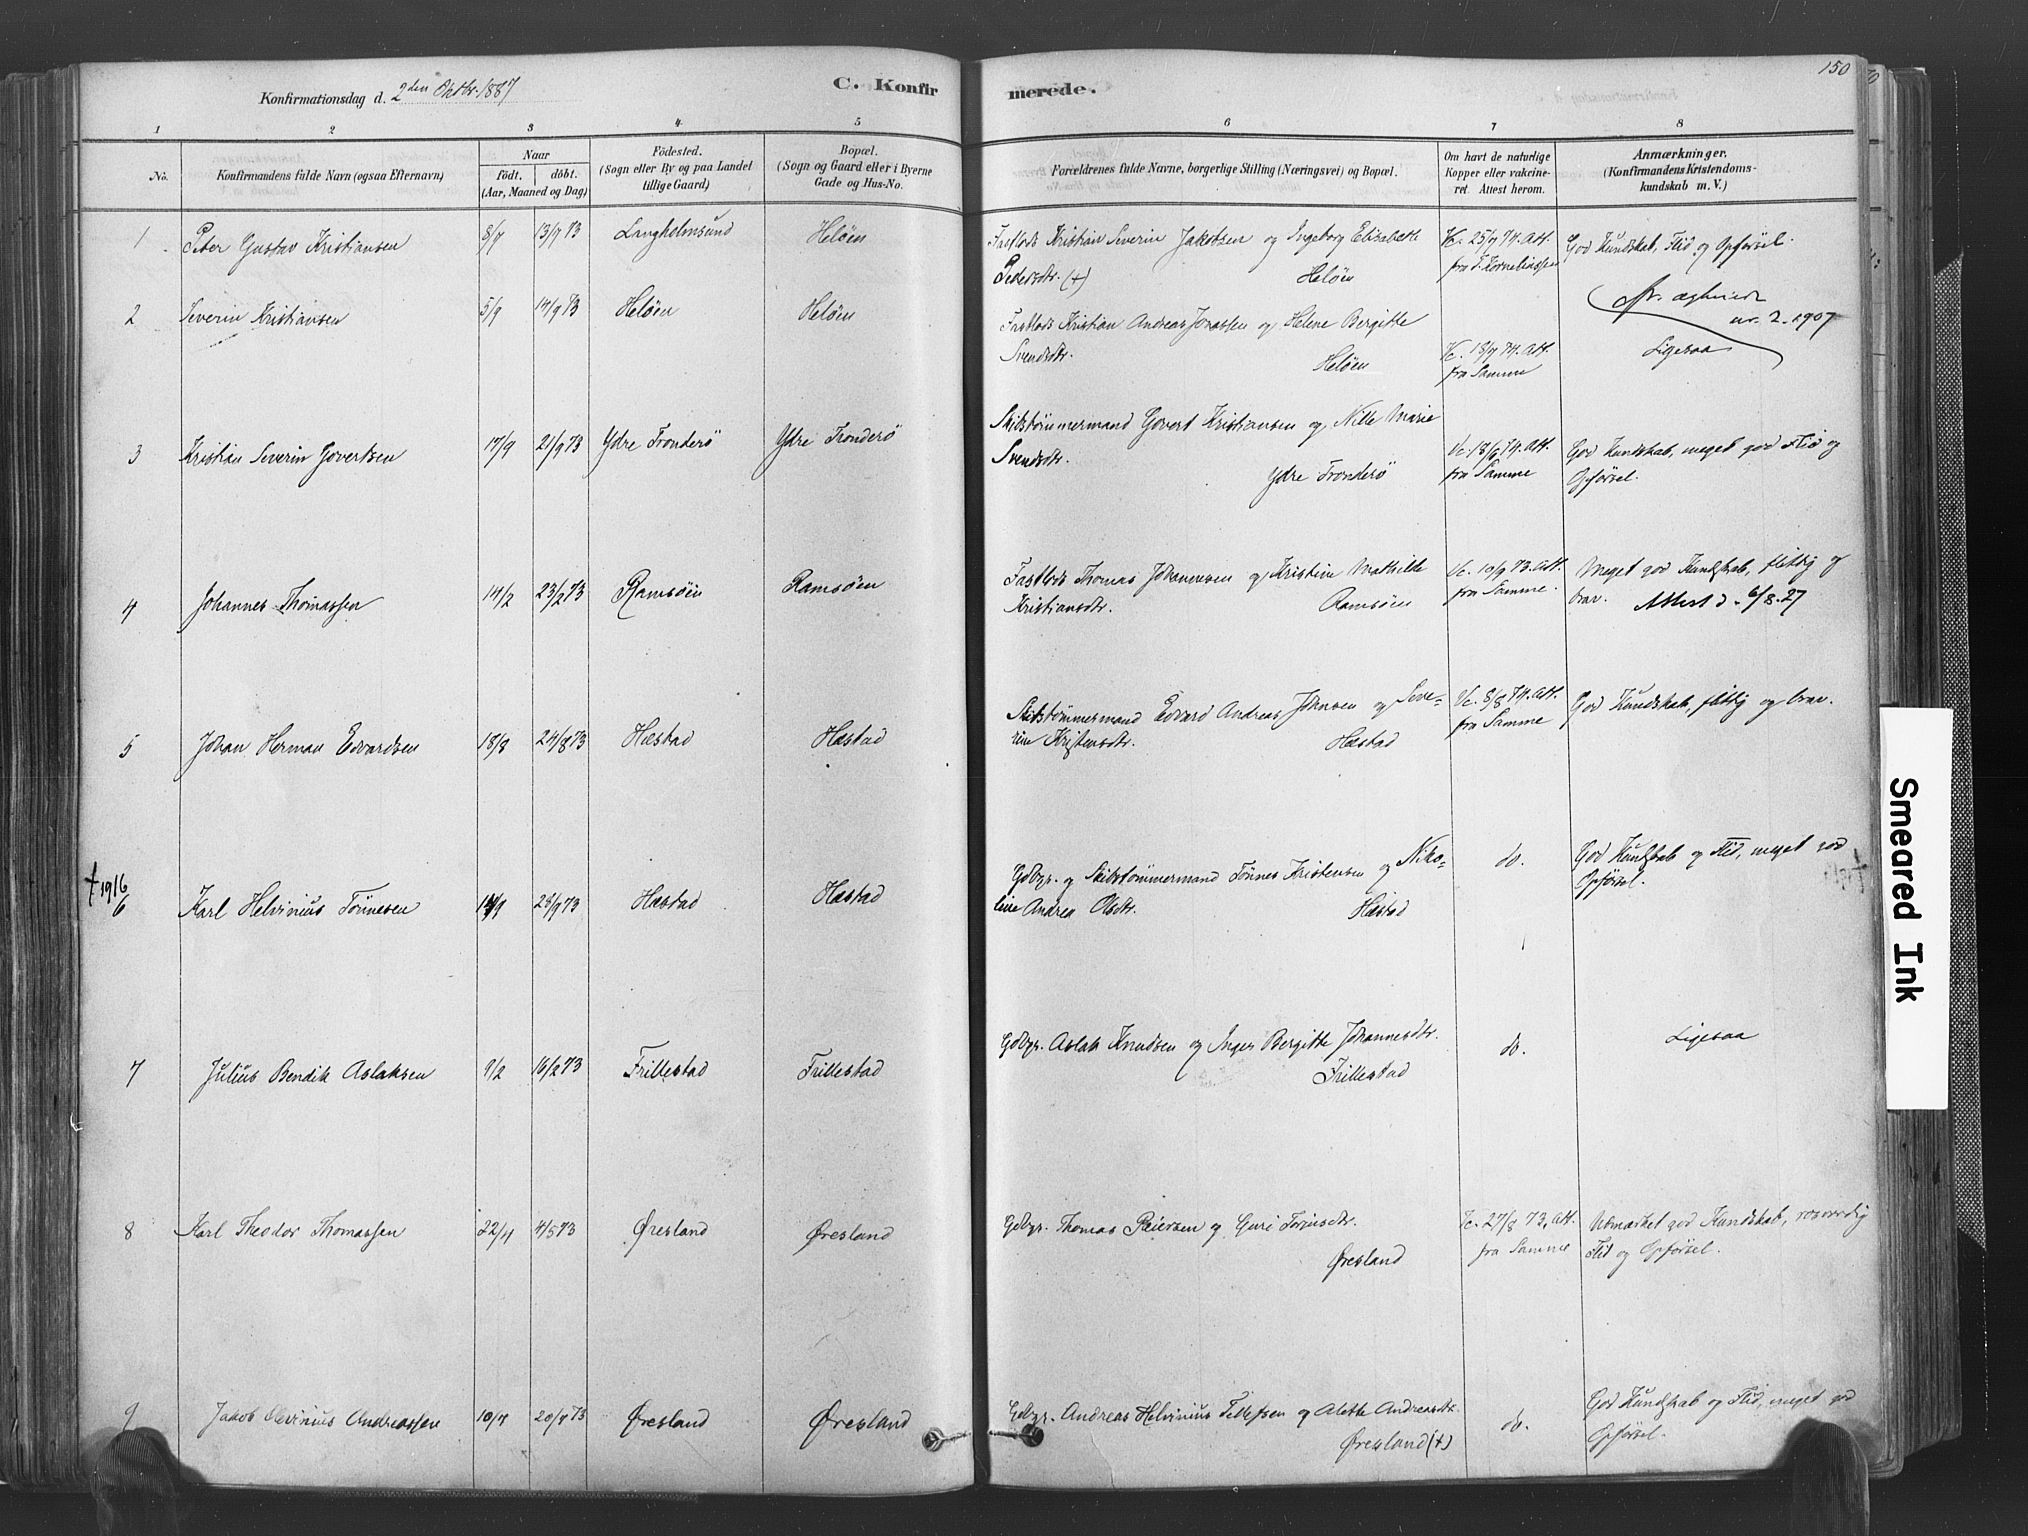 150
Konfirmationsdag d. 2den Oktbr. 1887
C. Konfirmerede.
1 2 3 4 5 6 7 8
No.
Konfirmandens fulde Navn (ogsaa Efternavn)
Naar
født. døbt.
(Aar, Maaned og Dag)
Födested.
(Sogn eller By og paa Landet
tillige Gaard)
Bopæl.
(Sogn og Gaard eller i Byerne
Gade og Hus-No.
Forældrenes fulde Navne, borgerlige Stilling (Næringsvei) og Bopæl.
Om havt de naturlige
Kopper eller vakcine-
ret. Attest herom.
Anmærkninger.
(Konfirmandens Kristendoms-
kundskab m. V.)
1 Peter Gustav Kristiansen 8/7 13/7 73 Langholmsund Heløen
Fastlods Kristian Severin Jakobsen og Ingeborg Elisabeth
Pedersdtr. (+) Heløen
Vc. 25/7 74. Att.
fra J. Korneliussen
God Kundskab, Flid og Opførsel.
2 Severin Kristiansen 5/9 14/9 73 Heløen Heløen
Fastlods Kristian Andreas Jonassen og Helene Bergitte
Svendsdtr. Heløen
Vc. 18/7 74. Att.
fra Samme
nr. 2. 1907
Ligesaa
3 Kristian Severin Govertsen 17/9 21/9 73 Ydre Tronderö Ydre Tronderö
Skibstømmermand Govert Kristiansen og Nille Marie
Svendsdtr. Ydre Tronderö
Vc. 18/6 74. Att.
fra Samme
God Kundskab, meget god Flid og
Opførsel.
4 Johannes Thomassen 14/2 23/2 73 Ramsöen Ramsöen
Fastlods Thomas Johannesen og Kristine Mathilde
Kristiansdtr. Ramsöen
Vc. 10/9 73. Att.
fra Samme.
Meget god Kundskab, flittig og
brav. Attest d. 6/8.27
5 Johan Herman Edvardsen 18/8 24/8 73 Hæstad Hæstad
Skibstømmermand Edvard Andreas Johnsen og Seve-
rine Kristensdtr. Hæstad
Vc. 8/8 74. Att.
fra Samme
God Kundskab, flittig og brav.
† 1916
6 Karl Helvinius Tönnesen 14/9 28/9 73 Hæstad Hæstad
Gdbgr. og Skibstømmermand Tönnes Kristensen og Niko-
line Andrea Olsdtr. Hæstad
do.
God Kundskab og Flid, meget god
Opførsel.
7 Julius Bendik Aslaksen 9/2 16/2 73 Frillestad Frillestad
Gdbgr. Aslak Knudsen og Inger Bergitte Johannesdtr.
Frillestad
do.
Ligesaa
8 Karl Theodor Thomassen 22/4 4/5 73 Øresland Øresland
Gdbgr. Thomas Reiersen og Guri Torinsdtr.
Øresland
Vc. 27/8 73. Att.
fra Samme
Udmærket god Kundskab, rosværdig
Flid og Opførsel.
9 Jakob Servinius Andreassen 10/7 20/7 73 Øresland Øresland
Gdbgr. Andreas Helvinius Tellefsen og Alette Andreasdtr.
Øresland (+)
do.
God Kundskab og Flid, meget god
Opførsel.
Smeared Ink